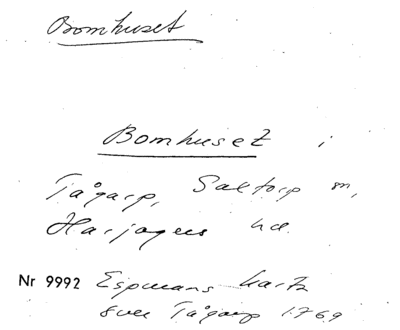 Bomhuset
Bomhuset i
Tågarp, Saxtorp sn,
Harjagers hd.
Nr 9992 Espmans karta
över Tågarp 1769